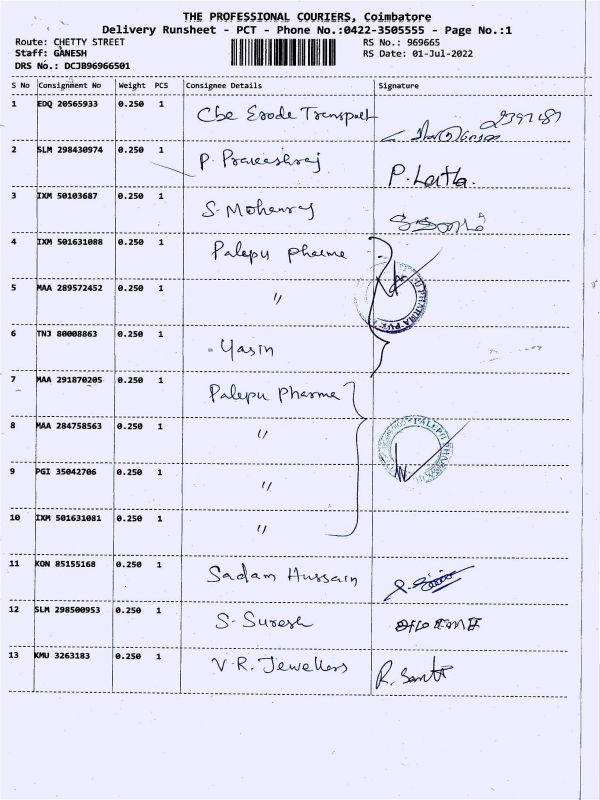 THE PROFESSIONAL COURIERS, Coimbatore
Delivery Runsheet - PCT - Phone No.:0422-3505555 - Page No.:1
Route: CHETTY STREET RS No.: 969665
Staff: GANESH RS Date: 01-Jul-2022
DRS No.: DCJB96966501
S No Consignment No Weight PCS Consignee Details Signature
1 EDQ 20565933 0.250 1 Cbe Erode Transport
2 SLM 298430974 0.250 1 P. Praveeshraj P. Latha.
3 IXM 50103687 0.250 1 S. Mohanraj
4 IXM 501631088 0.250 1 Palepu Pharma
5 MAA 289572452 0.250 1 "
6 TNJ 80008863 0.250 1 Yasin
7 MAA 291870205 0.250 1 Palepu Pharma
8 MAA 284758563 0.250 1 " PALEPU PHARMA
9 PGI 35042706 0.250 1 "
10 IXM 501631081 0.250 1 "
11 KON 85155168 0.250 1 Sadam Hussain
12 SLM 298500953 0.250 1 S. Suresh
13 KMU 3263183 0.250 1 V.R. Jewellers